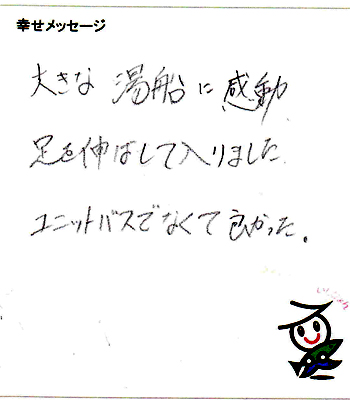 幸せメッセージ
大きな湯船に感動
足を伸ばして入りました
ユニットバスでなくて良かった.